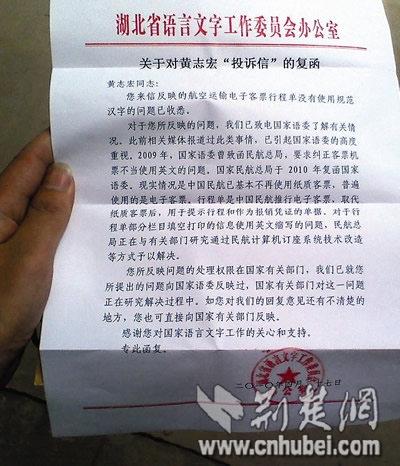 湖北省语言文字工作委员会办公室
关于对黄志宏“投诉信”的复函
黄志宏同志：
您来信反映的航空运输电子客票行程单没有使用规范
汉字的问题已收悉。
对于您所反映的问题，我们已致电国家语委了解有关情
况。此前相关媒体报道过此类事情，已引起国家语委的高度
重视。2009年，国家语委曾致函民航总局，要求纠正客票机
票不当使用英文的问题。国家民航总局于2010年复函国家
语委。现实情况是中国民航已基本不再使用纸质客票，普遍
使用的是电子客票。行程单是中国民航推行电子客票，取代
纸质客票后，用于提示行程和作为报销凭证的单据。对于行
程单部分栏目填空打印的信息使用英文缩写的问题，民航总
局正在与有关部门研究通过民航计算机订座系统技术改造
等方式予以解决。
您所反映问题的处理权限在国家有关部门，我们已就您
所提出的问题向国家语委反映过，国家有关部门对这一问题
正在研究解决过程中。如您对我们的回复意见还有不清楚的
地方，您也可直接向国家有关部门反映。
感谢您对国家语言文字工作的关心和支持。
专此函复。
二〇一〇年 月二十七日
荆楚网
www.cnhubei.com